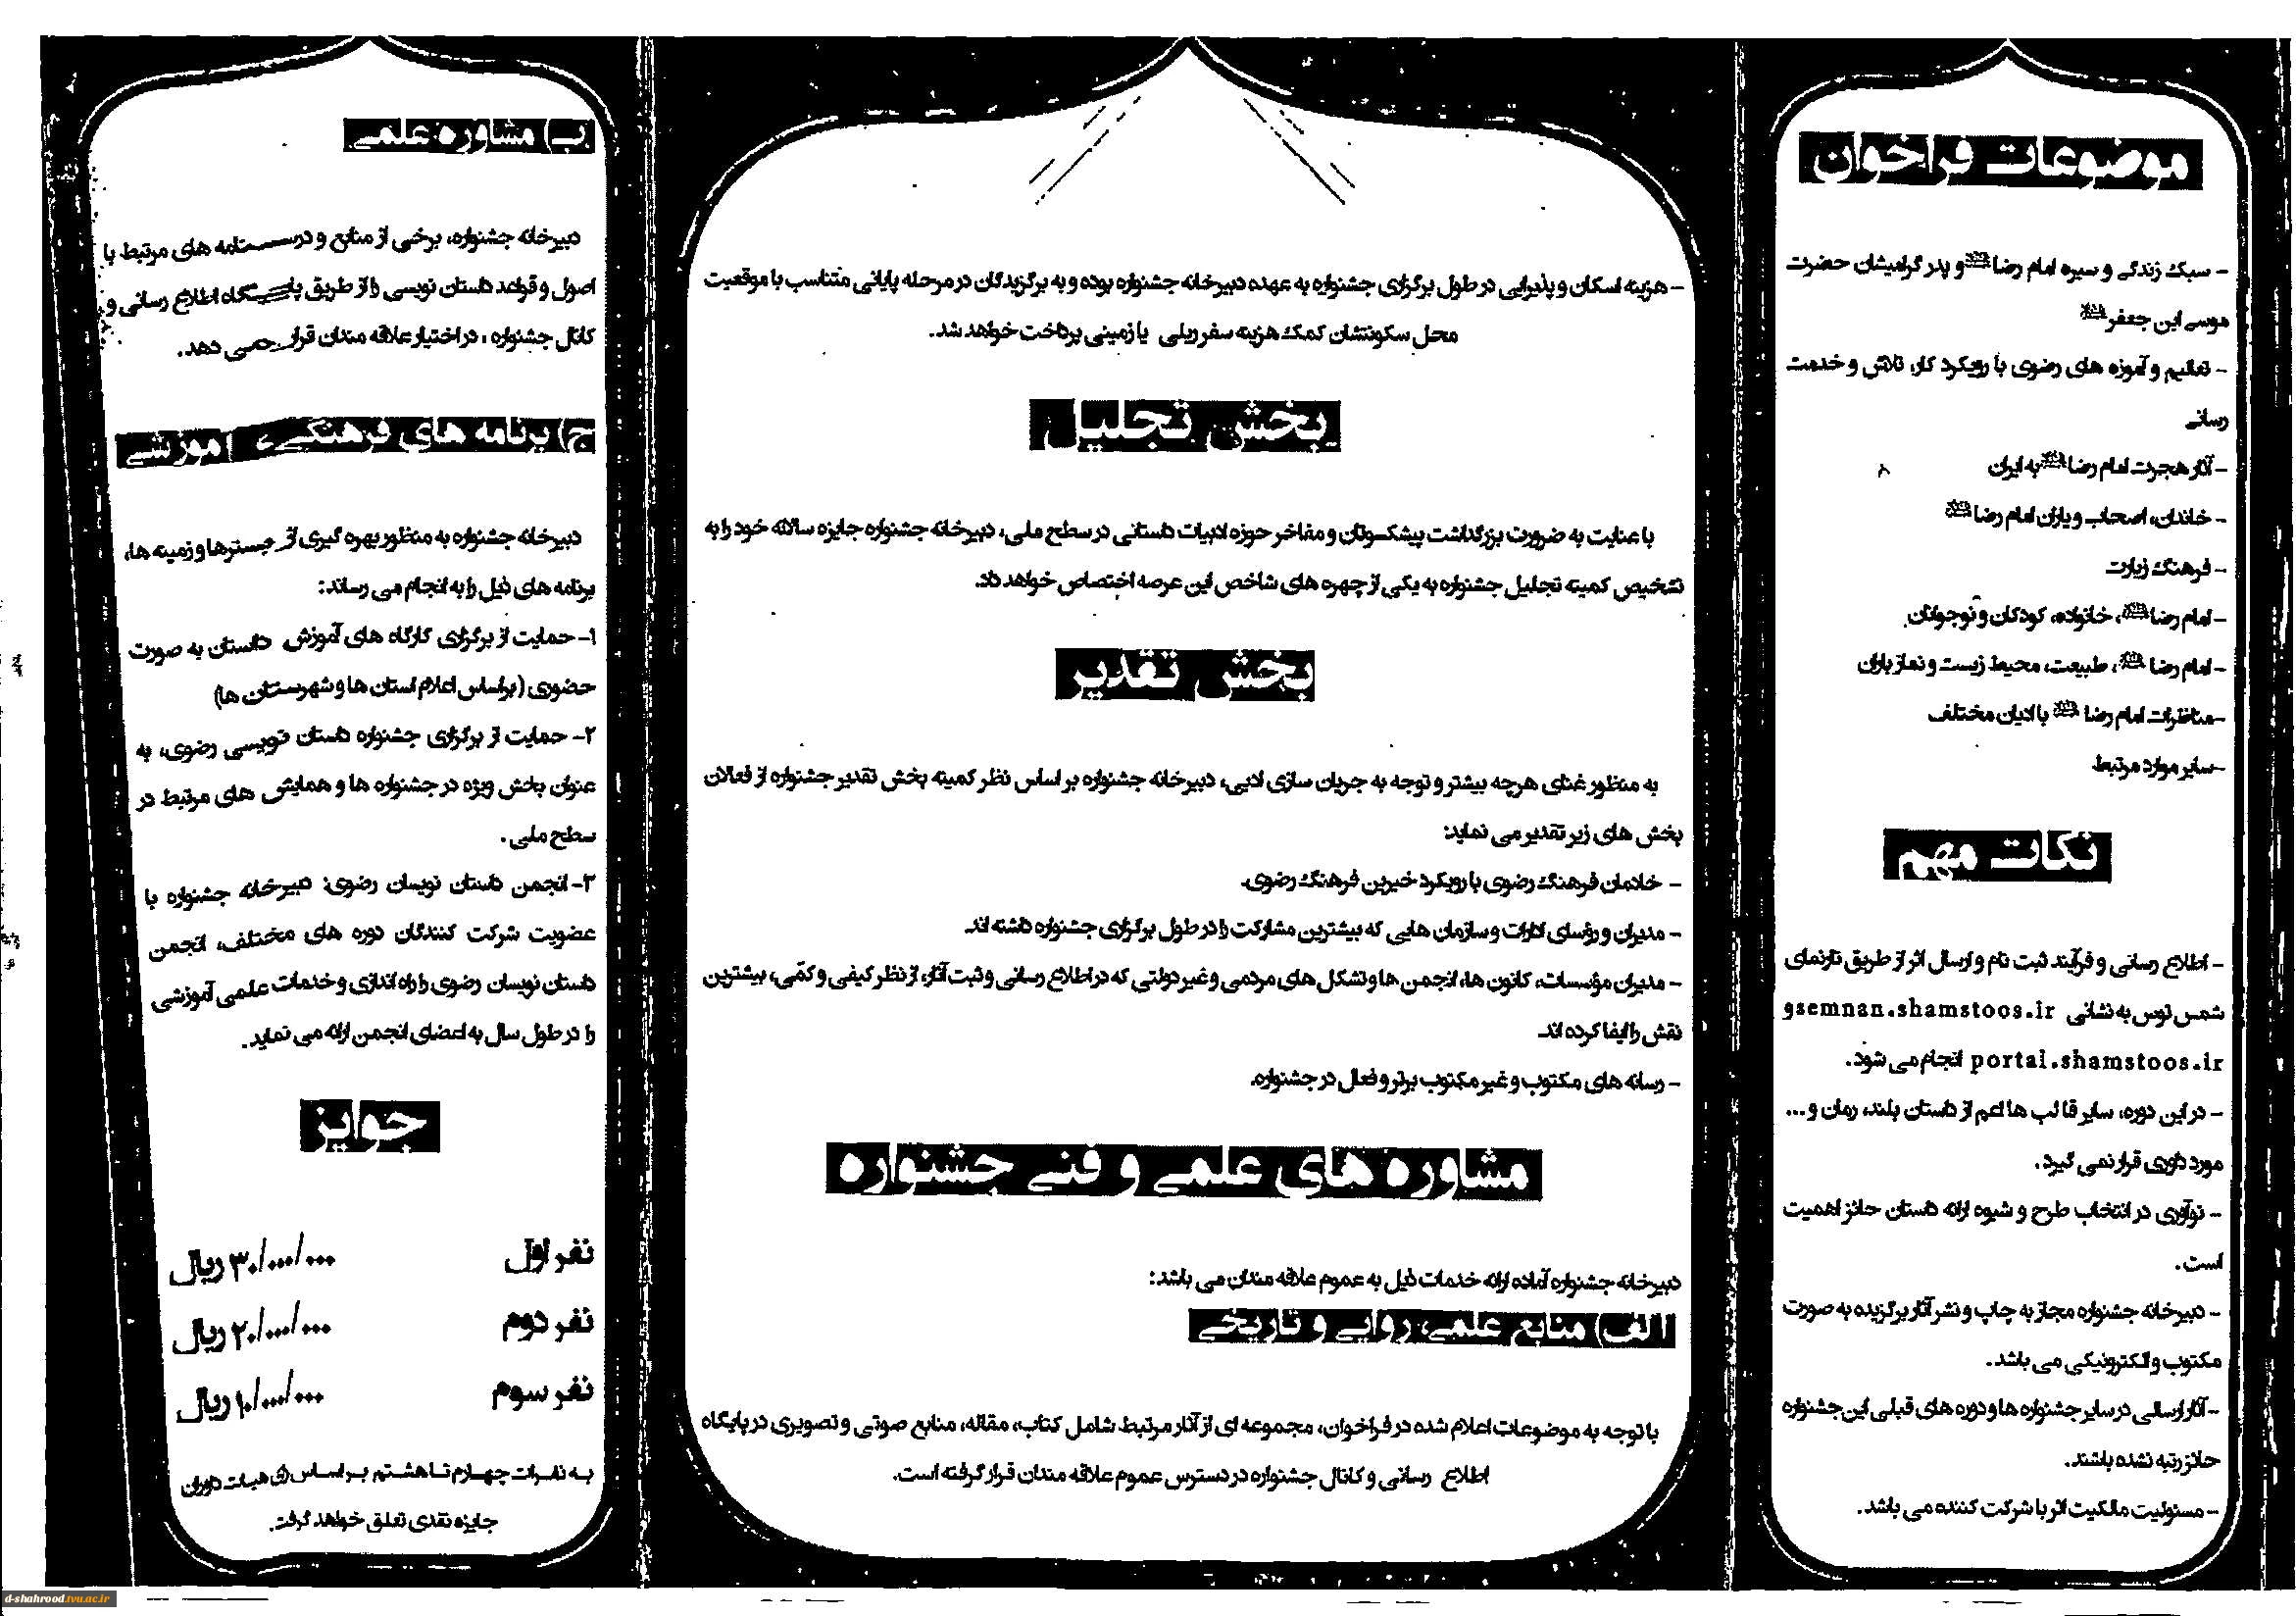 موضوعات فراخوان
- سبک زندگی و سیره امام رضا(ع) و پدر گرامیشان حضرت
موسی ابن جعفر(ع)
- تعالیم و آموزه های رضوی با رویکرد کار، تلاش و خدمت
رسانی
- آثار هجرت امام رضا(ع) به ایران
- خاندان، اصحاب و یاران امام رضا(ع)
- فرهنگ زیارت
- امام رضا(ع)، خانواده، کودکان و نوجوانان
- امام رضا(ع)، طبیعت، محیط زیست و نماز باران
- مناظرات امام رضا(ع) با ادیان مختلف
- سایر موارد مرتبط
نکات مهم
- اطلاع رسانی و فرآیند ثبت نام و ارسال اثر از طریق تارنمای
شمس توس به نشانی semnan.shamstoos.ir و
portal.shamstoos.ir انجام می شود.
- در این دوره، سایر قالب ها اعم از داستان بلند، رمان و...
مورد داوری قرار نمی گیرد.
- نوآوری در انتخاب طرح و شیوه ارائه داستان حائز اهمیت
است.
- دبیرخانه جشنواره مجاز به چاپ و نشر آثار برگزیده به صورت
مکتوب و الکترونیکی می باشد.
- آثار ارسالی در سایر جشنواره ها و دوره های قبلی این جشنواره
حائز رتبه نشده باشند.
- مسئولیت مالکیت اثر با شرکت کننده می باشد.
- هزینه اسکان و پذیرایی در طول برگزاری جشنواره به عهده دبیرخانه جشنواره بوده و به برگزیدگان در مرحله پایانی متناسب با موقعیت
محل سکونتشان کمک هزینه سفر ریلی یا زمینی پرداخت خواهد شد.
بخش تجلیل
با عنایت به ضرورت بزرگداشت پیشکسوتان و مفاخر حوزه ادبیات داستانی در سطح ملی، دبیرخانه جشنواره جایزه سالانه خود را به
تشخیص کمیته تجلیل جشنواره به یکی از چهره های شاخص این عرصه اختصاص خواهد داد.
بخش تقدیر
به منظور غنای هرچه بیشتر و توجه به جریان سازی ادبی، دبیرخانه جشنواره بر اساس نظر کمیته بخش تقدیر جشنواره از فعالان
بخش های زیر تقدیر می نماید:
- خادمان فرهنگ رضوی با رویکرد خیرین فرهنگ رضوی.
- مدیران و رؤسای ادارات و سازمان هایی که بیشترین مشارکت را در طول برگزاری جشنواره داشته اند.
- مدیران مؤسسات، کانون ها، انجمن ها و تشکل های مردمی و غیر دولتی که در اطلاع رسانی و ثبت آثار، از نظر کیفی و کمّی، بیشترین
نقش را ایفا کرده اند.
- رسانه های مکتوب و غیر مکتوب برتر و فعال در جشنواره.
مشاوره های علمی و فنی جشنواره
دبیرخانه جشنواره آماده ارائه خدمات ذیل به عموم علاقه مندان می باشد:
الف) منابع علمی، روایی و تاریخی
با توجه به موضوعات اعلام شده در فراخوان، مجموعه ای از آثار مرتبط شامل کتاب، مقاله، منابع صوتی و تصویری در پایگاه
اطلاع رسانی و کانال جشنواره در دسترس عموم علاقه مندان قرار گرفته است.
ب) مشاوره علمی
دبیرخانه جشنواره، برخی از منابع و درسنامه های مرتبط با
اصول و قواعد داستان نویسی را از طریق پایگاه اطلاع رسانی و
کانال جشنواره ، در اختیار علاقه مندان قرار می دهد.
ج) برنامه های فرهنگی، آموزشی
دبیرخانه جشنواره به منظور بهره گیری از بسترها و زمینه ها،
برنامه های ذیل را به انجام می رساند:
۱- حمایت از برگزاری کارگاه های آموزش داستان به صورت
حضوری (براساس اعلام استان ها و شهرستان ها)
۲- حمایت از برگزاری جشنواره داستان نویسی رضوی، به
عنوان بخش ویژه در جشنواره ها و همایش های مرتبط در
سطح ملی.
۳- انجمن داستان نویسان رضوی: دبیرخانه جشنواره با
عضویت شرکت کنندگان دوره های مختلف، انجمن
داستان نویسان رضوی را راه اندازی و خدمات علمی آموزشی
را در طول سال به اعضای انجمن ارائه می نماید.
جوایز
نفر اول ۳۰/۰۰۰/۰۰۰ ریال
نفر دوم ۲۰/۰۰۰/۰۰۰ ریال
نفر سوم ۱۰/۰۰۰/۰۰۰ ریال
به نفرات چهارم تا هشتم بر اساس رای هیات داوران
جایزه نقدی تعلق خواهد گرفت.
d-shahrood.tvu.ac.ir